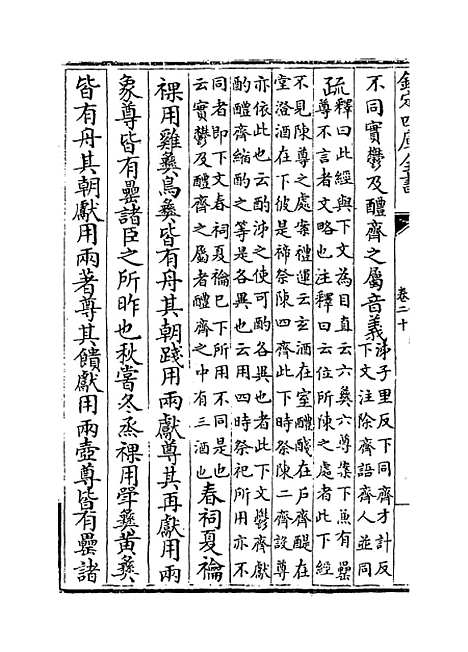 欽定四庫全書
卷二十
不同實鬱及醴齊之屬音義
泲子里反下同齊才計反
下文注除齊語齊人並同
疏
釋曰此經與下文為目直云六彝六尊案下兼有罍
尊不言者文略也注釋曰云位所陳之處者此下經
不見陳尊之處案禮運云玄酒在室醴醆在戶齊醍在
堂澄酒在下彼是禘祭陳四齊此下時祭陳二齊設尊
亦依此也云酌泲之使可酌各異也者此下文鬱齊獻
酌醴齊縮酌之等是各異也云用四時祭祀所用亦不
同者即下文春祠夏禴已下所用不同是也
云實鬱及醴齊之屬者醴齊之中有三酒也
春祠夏禴
祼用雞彝鳥彝皆有舟其朝踐用兩獻尊其再獻用兩
象尊皆有罍諸臣之所昨也秋嘗冬烝祼用斝彝黃彝
皆有舟其朝獻用兩著尊其饋獻用兩壺尊皆有罍諸